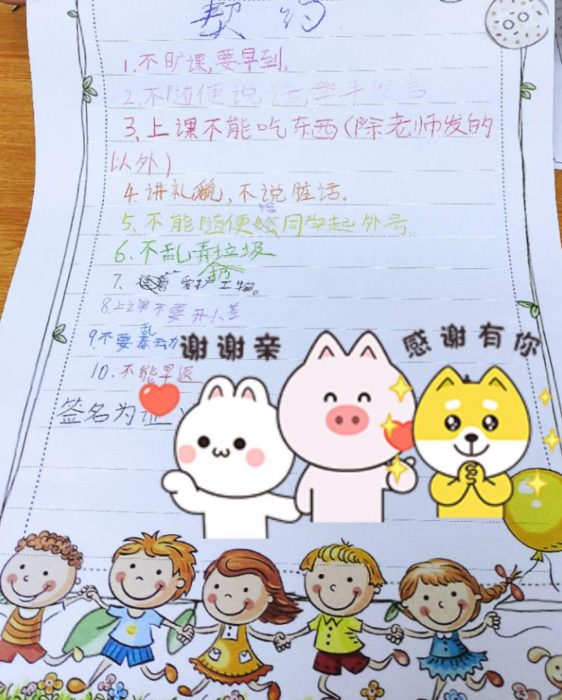 契约
1.不旷课,要早到。
2.不随便说话,举手发言
3.上课不能吃东西(除老师发的
以外)
4.讲礼貌,不说脏话。
5.不能随便给同学起外号。
6.不乱弃垃圾
7.爱护公物。
8.上课不要开小差
9不要乱
10.不能早退
签名为证
谢谢亲
感谢有你